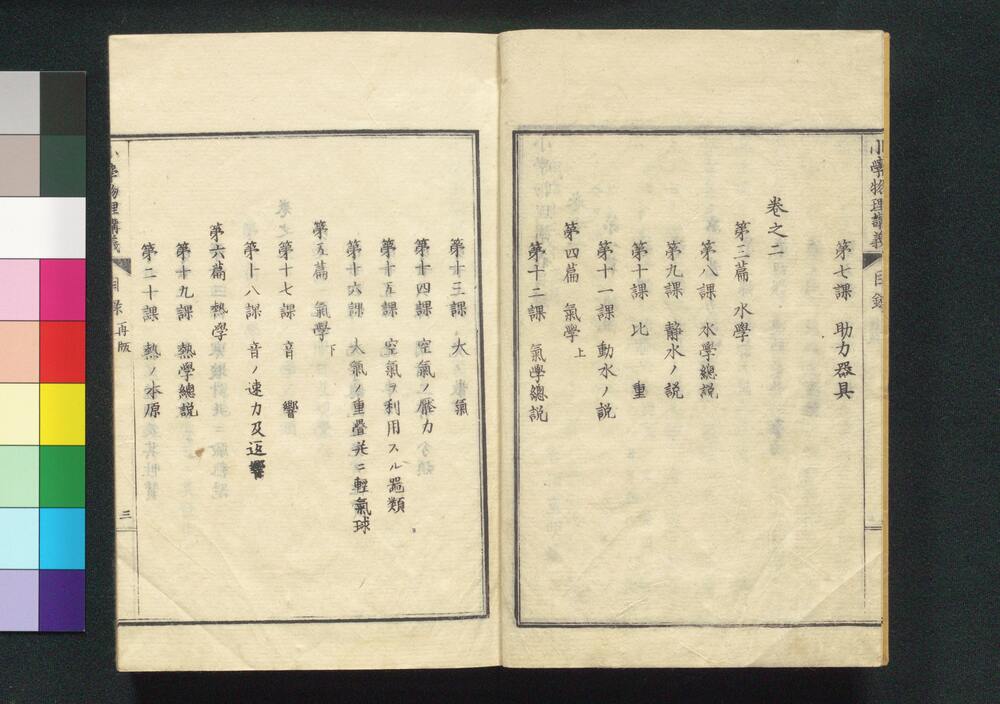 小學物理講義
目錄
第七課 助力器具
卷之二
第三篇 水學
第八課 水學總説
第九課 靜水ノ説
第十課 比重
第十一課 動水ノ説
第四篇 氣學 上
第十二課 氣學總説
第十三課 大氣
第十四課 空氣ノ壓力
第十五課 空氣ヲ利用スル噐類
第十六課 大氣ノ重量并ニ輕氣球
第五篇 氣學 下
第十七課 音響
第十八課 音ノ速力及返響
第六篇 熱學
第十九課 熱學總説
第二十課 熱ノ本原
小學物理講義
目錄 再版
三